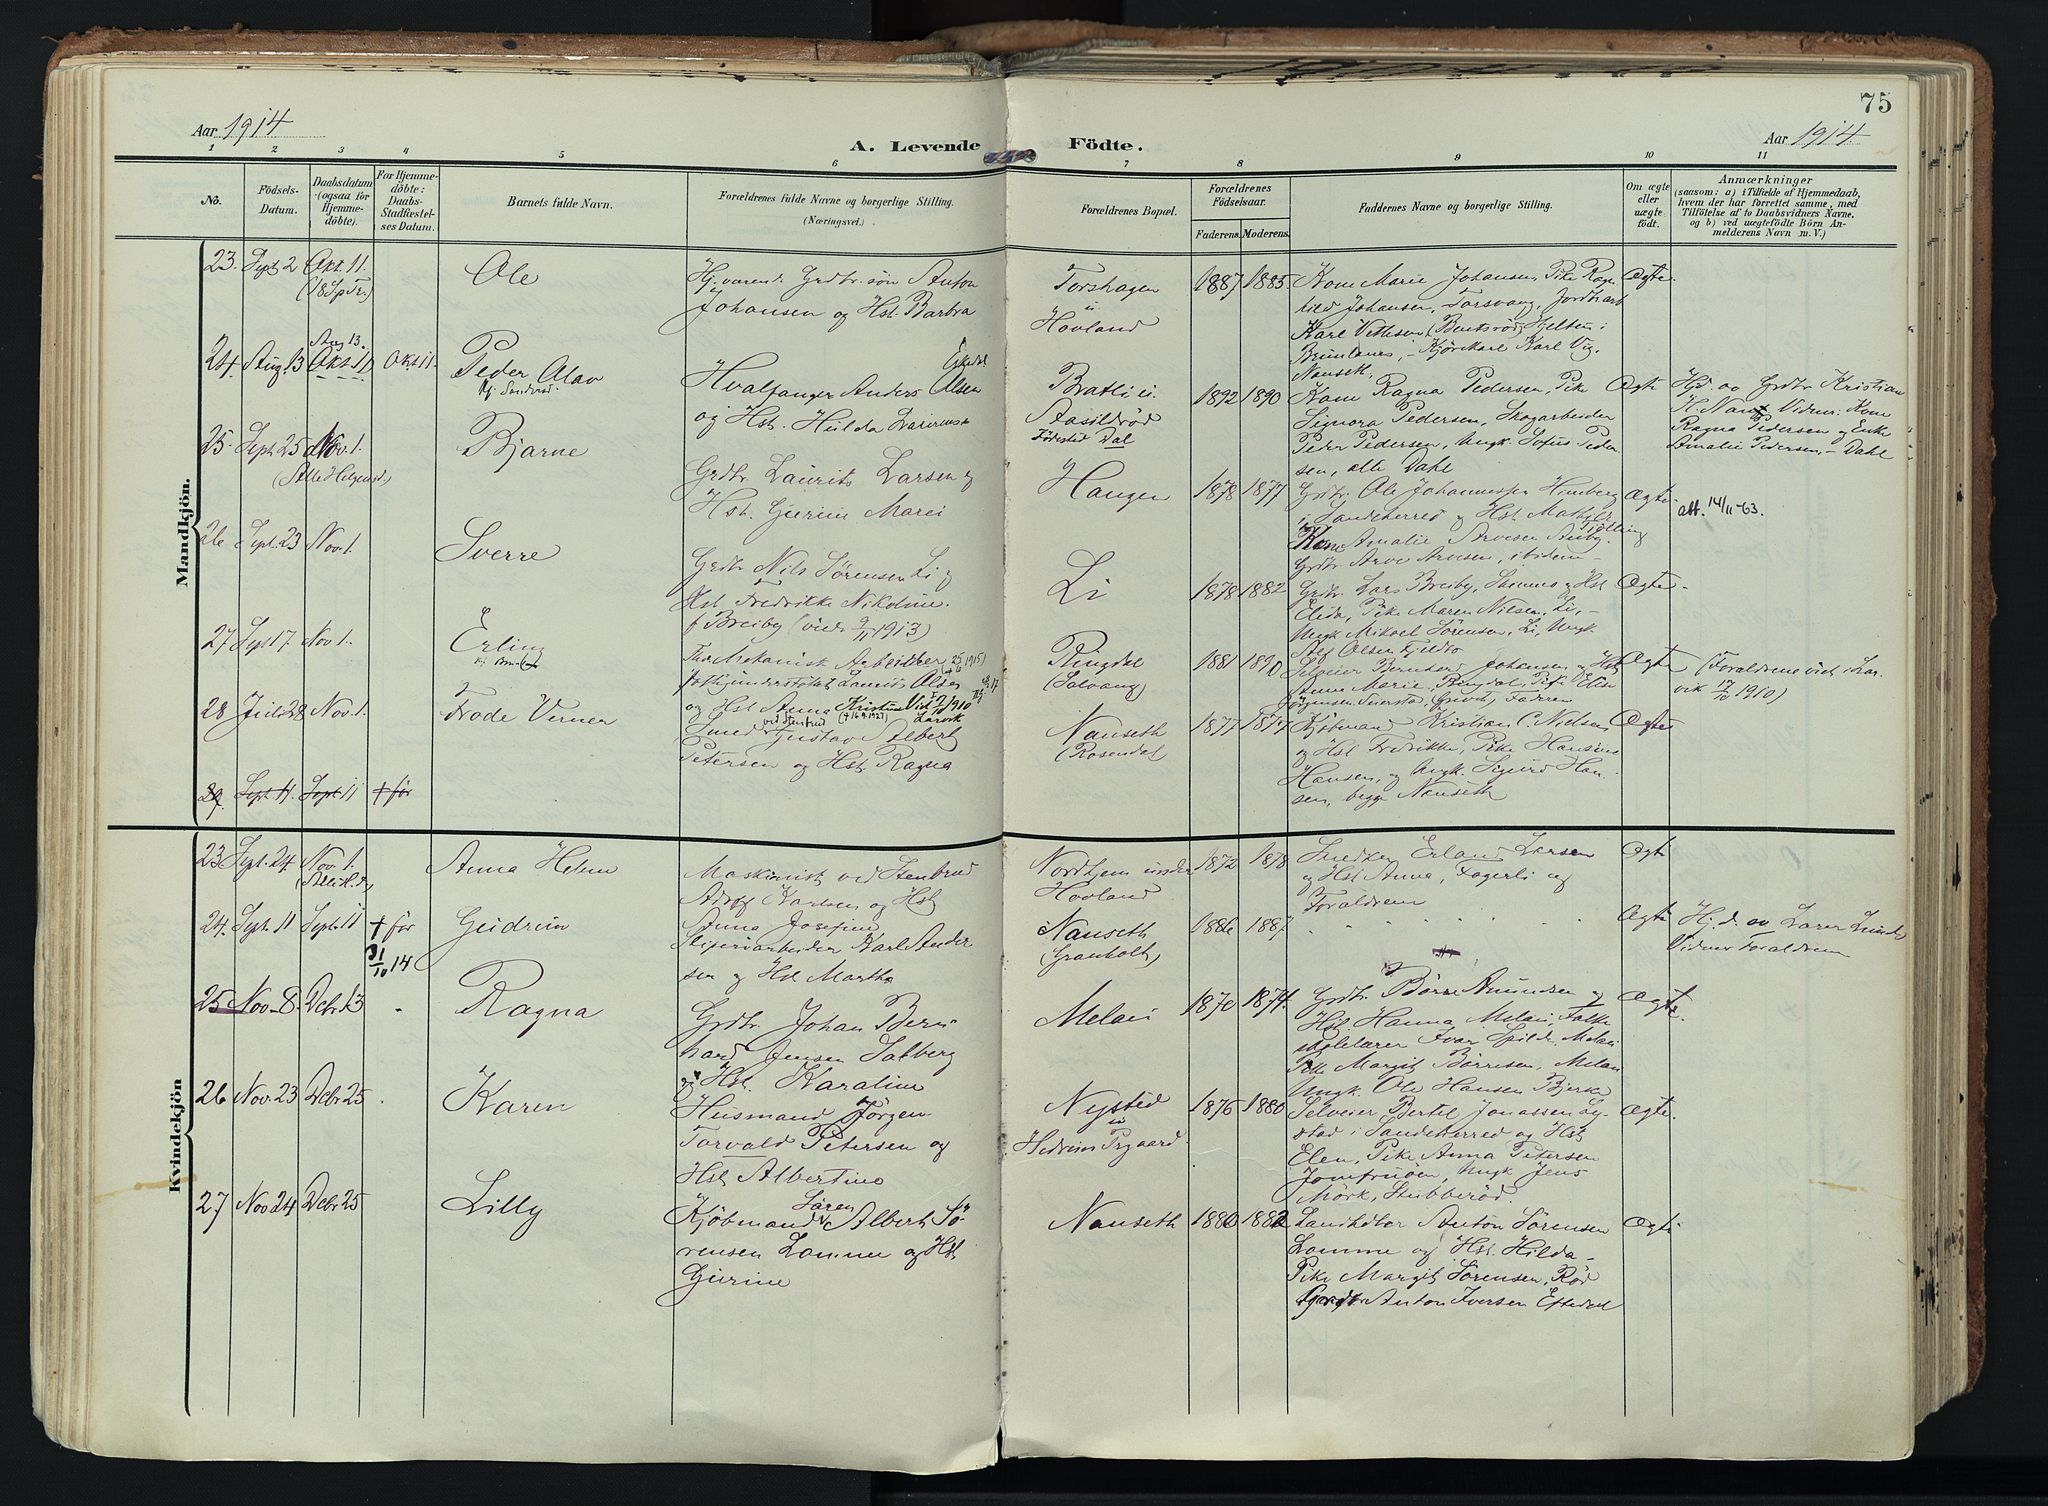 75
Aar 1914
A. Levende Födte.
Aar 1914
1 2 3 4 5 6 7 8 9 10 11
No.
Födsels-
Datum.
Daabsdatum
(ogsaa for
Hjemme-
döbte).
For Hjemme-
döbte:
Daabs-
Stadfæstel-
ses Datum.
Barnets fulde Navn.
Forældrenes fulde Navne og borgerlige Stilling.
(Næringsvei.)
Forældrenes Bopæl.
Forældrenes
Födselsaar.
Faderens. Moderens.
Faddernes Navne og borgerlige Stilling.
Om ægte
eller
uægte
födt.
Anmærkninger
(saasom: a) i Tilfælde af Hjemmedaab,
hvem der har forrettet samme, med
Tilföielse af to Daabsvidners Navne.
og b) ved uægtefödte Börn An-
melderens Navn m. V.)
Mandkjön.
23. Sept 2 Okt. 11.
(18 S. p. Tr.)
Ole
Hj. værende Grdbr. søn Anton
Johansen og Hst. Barbra
Torshagen
u
Hovland
1887 1885
Kone Marie Johansen, Pike Ragn
hild Johansen, Torsvang, Jordbrarb
Karl Vettesen (Bentsrød) Fjeltun i
Brunlanes, - Kjørekarl Karl Vig,
Nanseth
Ægte
24. Aug. 13 Aug 13.
Okt. 10 Okt 11.
Peder Olav
Kj. Sandviad
Hvalfanger Anders Olsen
og Hst. Hulda
Bratli i
Aasildrød
Fødested Dal
1892 1890
Kone Ragna Pedersen, Pike
Signora Pedersen, Skogarbeider
Peder Pedersen, Ungk. Sofus Peder
sen, alle Dahl
Ægte
Hjd. av Grdbr Kristian
H. Nan Vidner: Kone
Ragna Pedersen og Enke
Amalie Pedersen, - Dahl
25. Sept. 25 Nov. 1.
(Alle Helgensd.)
Bjarne
Grdbr. Laurits Larsen og
Hst. Gurine Marei
Haugen
1878 1877
Grdbr. Ole Johannesen Himberg
i Sandeherred og Hst. Mathilde
Kone Amalie Arvesen Auby.
Grdbr Arve Arvesen, ibidem
Ægte
att. 14/11-63.
26 Sept. 23 Nov. 1.
Sverre
Grdbr Nils Sørensen Li og
Hst Fredrikke Nikoline
f Breiby (viede 9/11 1913)
Li
1878 1882
Grdbr. Lars Breiby, Skinnes og Hst
Elida, Pike Maren Nilsen, Li, -
Ungk Mikael Sørensen, Li, Ungk.
Alf Olsen Fjeldto
Ægte
27 Sept 17. Nov 1.
Erling
Kj. Brunlanes
Mekanisk Arbeider
Laurits Olsen
og Hst Anna Kristine Viet 17/10 1910
(† 16.9.1927) Larvik
Ringdal
(Solvang)
1881 1890
Selveier Bernhard Johansen og Hst
Anne Marie, Ringdal, Pike Elise
Jørgensen Veiersta, Faderen
Ægte
(Forældrene viet i Lar
vik 17/10 1910)
28 Juli 28 Nov. 1.
Frode Verner
ved Stenbrud
Smed Gustav Albert
Petersen og Hst. Ragna
Nanseth
(Rosendal)
1877 1877
Kjøbmand Kristian C. Nielsen
og Hst Fredrikke, Pike Hansine
Hansen, og Ungk. Sigurd Han-
sen, begge Nanseth
Ægte
29. Sept 11. Sept 11 † før
Kvindekjön
23 Sept. 24 Nov. 1.
(Alle H. d.)
Anna Helene
Maskinist ved Stenbrud
Adolf Karlsen og Hst
Anna Josefine
Nordhjem under
Hovland
1872 1878
Snedker Erland Larsen
og Hst Anna, Fagerli og
Forældrene
Ægte
24. Sept. 11 Sept. 11 † før
31/10 14
Gudrun
Sliperiarbeider Karl Ander
sen og Hst Martha
Nanseth
(Granholt)
1886 1887
" " " " "
Ægte
Hj. d. av Lærer Lunde
Vidner Forældrene
25 Nov. 8. Dcbr. 13 "
Ragna
Grdbr. Johan Bern
hard Jensen Solberg
og Hst. Karoline
Melau
1870 1874.
Grdbr. Børre Amundsen og
Hst. Hanna Melau, Folke
skolelærer Ivar Spilde Melau
Pike Margit Børresen, Melau
Ungk. Ole Hansen Bjerke
Ægte.
26 Nov. 23 Dcbr 25 .
Karen
Husmand Jørgen
Torvald Petersen og
Hst Albertine
Nysted
u
Hedrum Prgaard.
1876 1880
Selveier Bertel Jonassen Ly-
stad i Sandeherred og Hst
Elen, Pike Anna Petersen
Jomfruøen, Ungk Jens
Mørk, Stubberød.
Ægte.
27 Nov 24 Dcbr 25
Lilly
Søren
Kjøbmand Albert Sø-
rensen Lamme og Hst
Gurine
Nanseth
1880 1882
Landhdlr Anton Sørensen
Lomme og Hst. Hilda -
Pike Margit Sørensen, Rød
Grdbr Anton Iversen Eftedal
Ægte